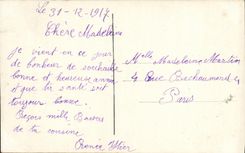 Le 31-12-1917
Chère Madeleine
je vient en ce jour
de bonheur de souhaiter
bonne et heureuse année
et que la santé soit
toujours bonne.
Reçois mille Baisers
de ta cousine
Renée
Melle Madeleine Martin
4 Rue Bachaumont
Paris